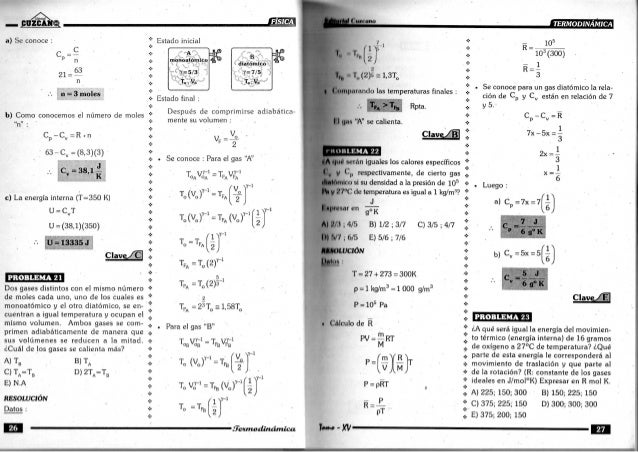 CUZCANO
FÍSICA
a) Se conoce :
C_p = C/n
21 = 63/n
∴ n = 3 moles
b) Como conocemos el número de moles
"n" :
C_p - C_v = R·n
63 - C_v = (8,3)(3)
∴ C_v = 38,1 J/K
c) La energía interna (T=350 K)
U = C_v T
U = (38,1)(350)
∴ U = 13335 J
Clave C
PROBLEMA 21
Dos gases distintos con el mismo número
de moles cada uno, uno de los cuales es
monoatómico y el otro diatómico, se en-
cuentran a igual temperatura y ocupan el
mismo volumen. Ambos gases se com-
primen adiabáticamente de manera que
sus volúmenes se reducen a la mitad.
¿Cuál de los gases se calienta más?
A) T_B B) T_A
C) T_A=T_B D) 2T_A=T_B
E) N.A
RESOLUCIÓN
Datos :
Estado inicial
A
monoatómico
γ=5/3
T_o, V_o
diatómico
γ=7/5
T_o, V_o
Estado final :
Después de comprimirse adiabática-
mente su volumen :
V_F = V_o/2
• Se conoce : Para el gas "A"
T_oA V_oA^(γ-1) = T_FA V_FA^(γ-1)
T_o (V_o)^(γ-1) = T_FA (V_o/2)^(γ-1)
T_o (V_o)^(γ-1) = T_FA (V_o)^(γ-1) (1/2)^(γ-1)
T_o = T_FA (1/2)^(γ-1)
T_FA = T_o (2)^(γ-1)
T_FA = T_o (2)^(5/3-1)
T_FA = 2^(2/3) T_o = 1,58T_o
• Para el gas "B"
T_oB V_oB^(γ-1) = T_FB V_FB^(γ-1)
T_o (V_o)^(γ-1) = T_FB (V_o/2)^(γ-1)
T_o V_o^(γ-1) = T_FB (V_o)^(γ-1) (1/2)^(γ-1)
T_o = T_FB (1/2)^(γ-1)
26
Termodinámica
Cuzcano
TERMODINÁMICA
T_o = T_FB (1/2)^(7/5-1)
T_FB = T_o (2)^(2/5) = 1,3T_o
Comparando las temperaturas finales :
∴ T_FA > T_FB Rpta.
El gas "A" se calienta.
Clave B
PROBLEMA 22
¿A qué serán iguales los calores específicos
C_v y C_p respectivamente, de cierto gas
diatómico si su densidad a la presión de 10^5
Pa y 27°C de temperatura es igual a 1 kg/m³?
Expresar en J/g°K
A) 2/3 ; 4/5 B) 1/2 ; 3/7 C) 3/5 ; 4/7
D) 5/7 ; 6/5 E) 5/6 ; 7/6
RESOLUCIÓN
Datos :
T = 27 + 273 = 300K
ρ = 1 kg/m³ - 1 000 g/m³
P = 10^5 Pa
• Cálculo de R̄
PV = (m/M)RT
P = (m/V)(R/M)T
P = ρR̄T
R̄ = P/ρT
R̄ = 10^5/10^3(300)
R̄ = 1/3
• Se conoce para un gas diatómico la rela-
ción de C_p y C_v están en relación de 7
y 5.
C_p - C_v = R̄
7x - 5x = 1/3
2x = 1/3
x = 1/6
• Luego :
a) C_p = 7x = 7(1/6)
∴ C_p = 7/6 J/g°K
b) C_v = 5x = 5(1/6)
∴ C_v = 5/6 J/g°K
Clave E
PROBLEMA 23
¿A qué será igual la energía del movimien-
to térmico (energía interna) de 16 gramos
de oxígeno a 27°C de temperatura? ¿Qué
parte de esta energía le corresponderá al
movimiento de traslación y que parte al
de la rotación? (R: constante de los gases
ideales en J/mol°K) Expresar en R mol K.
A) 225; 150; 300 B) 150; 225; 150
C) 375; 225; 150 D) 300; 300; 300
E) 375; 200; 150
Tomo - XV
27